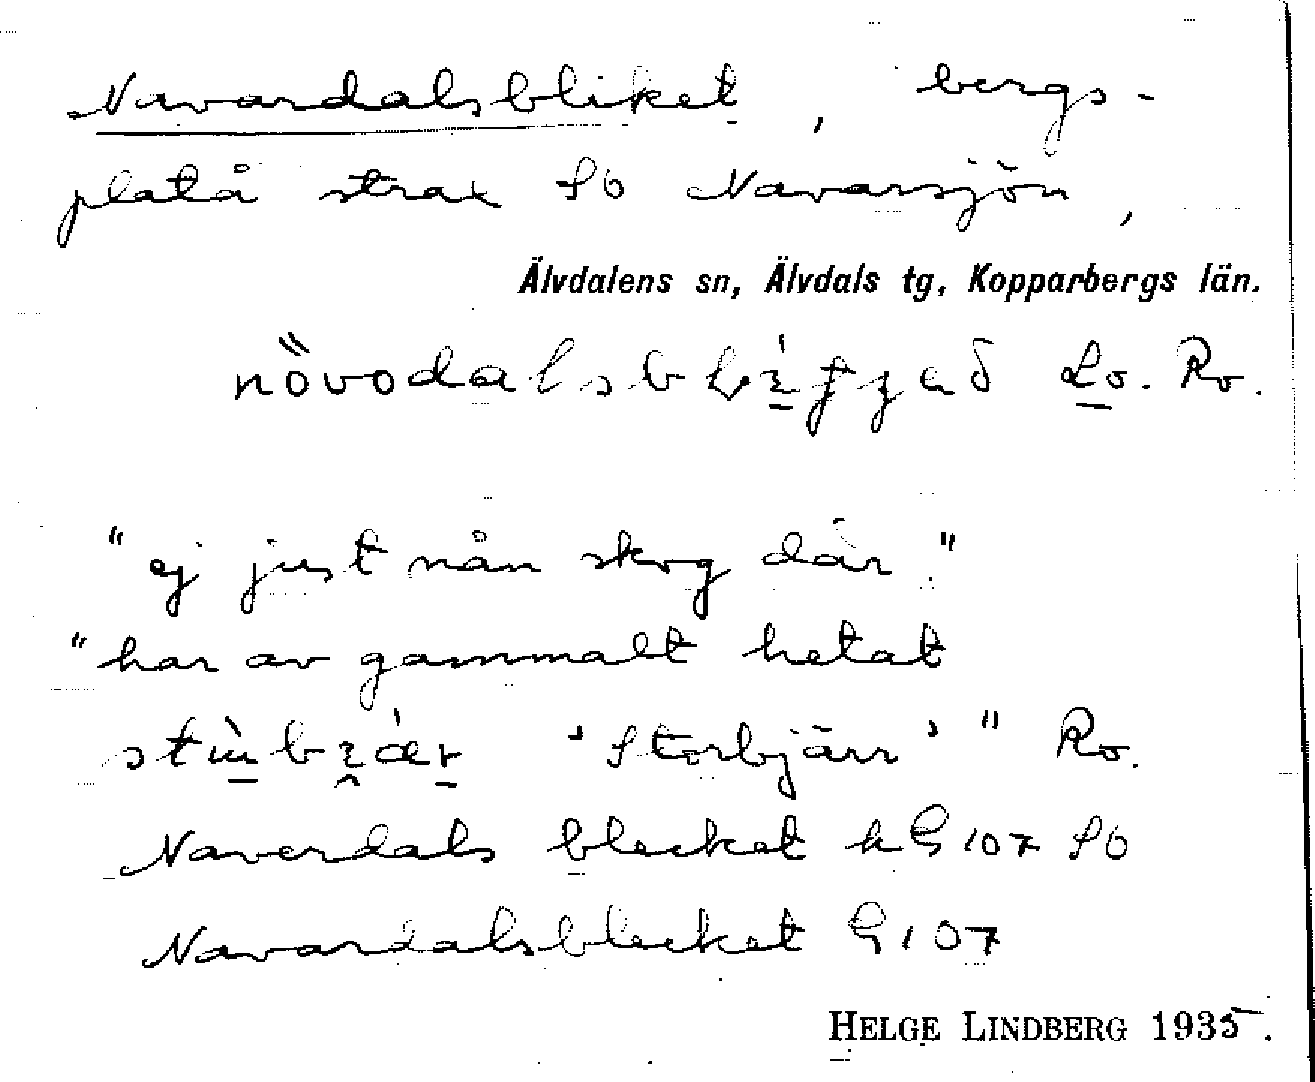 Navardalsbliket, bergs-
platå strax SO Navarsjön,
Älvdalens sn, Älvdals tg, Kopparbergs län.
Lo. Ro.
"ej just nån skog där."
"har av gammalt hetat
'Storbjärr'" Ro.
Naverdals blecket kG 107 SO
Navardalsblecket G 107
HELGE LINDBERG 1935.